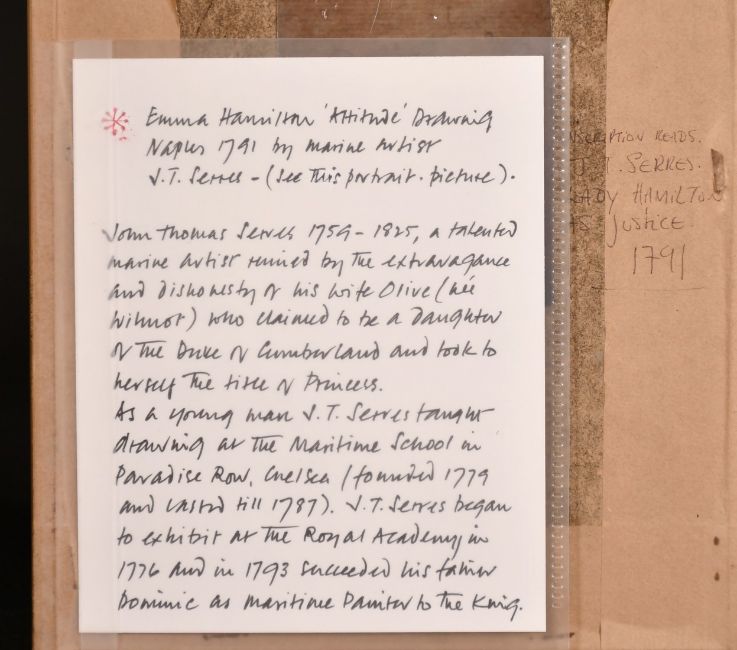 Emma Hamilton 'Attitude' Drawing
Naples 1791 by marine Artist
J.T. Serres - (see This portrait. picture).
John Thomas Serres 1759 - 1825, a talented
marine artist ruined by the extravagance
and dishonesty of his wife Olive (née
Wilmot) who claimed to be a Daughter
of The Duke of Cumberland and took to
herself The title of Princess.
As a young man J.T. Serres taught
drawing at The Maritime School in
Paradise Row, Chelsea (founded 1779
and lasted till 1787). J.T. Serres began
to exhibit at The Royal Academy in
1776 and in 1793 succeeded his father
Dominic as Maritime Painter to The King.
INSCRIPTION READS.
J.T. SERRES.
LADY HAMILTON
AS Justice
1791